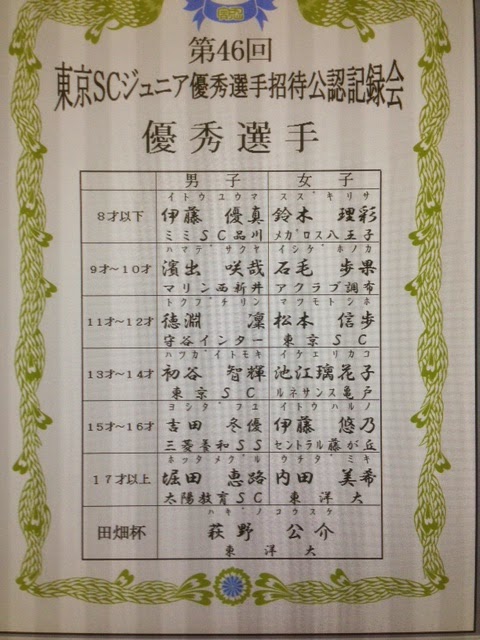 第46回
東京SCジュニア優秀選手招待公認記録会
優秀選手
男子 女子
イトウ ユウマ スズキ リサ
8才以下 伊藤 優真 鈴木 理彩
ミミSC品川 メガロス八王子
ハマデ サクヤ イシゲ ホノカ
9才~10才 濱出 咲哉 石毛 歩果
マリン西新井 アクラブ調布
トクブチ リン マツモト シホ
11才~12才 徳淵 凜 松本 信歩
守谷インター 東京SC
ハツガイ トモキ イケエ リカコ
13才~14才 初谷 智輝 池江 璃花子
東京SC ルネサンス亀戸
ヨシダ フユ イトウ ハルノ
15才~16才 吉田 冬優 伊藤 悠乃
三菱養和SS セントラル藤が丘
ホッタ メグル ウチダ ミキ
17才以上 堀田 恵路 内田 美希
太陽教育SC 東洋大
ハギノ コウスケ
田畑杯 萩野 公介
東洋大